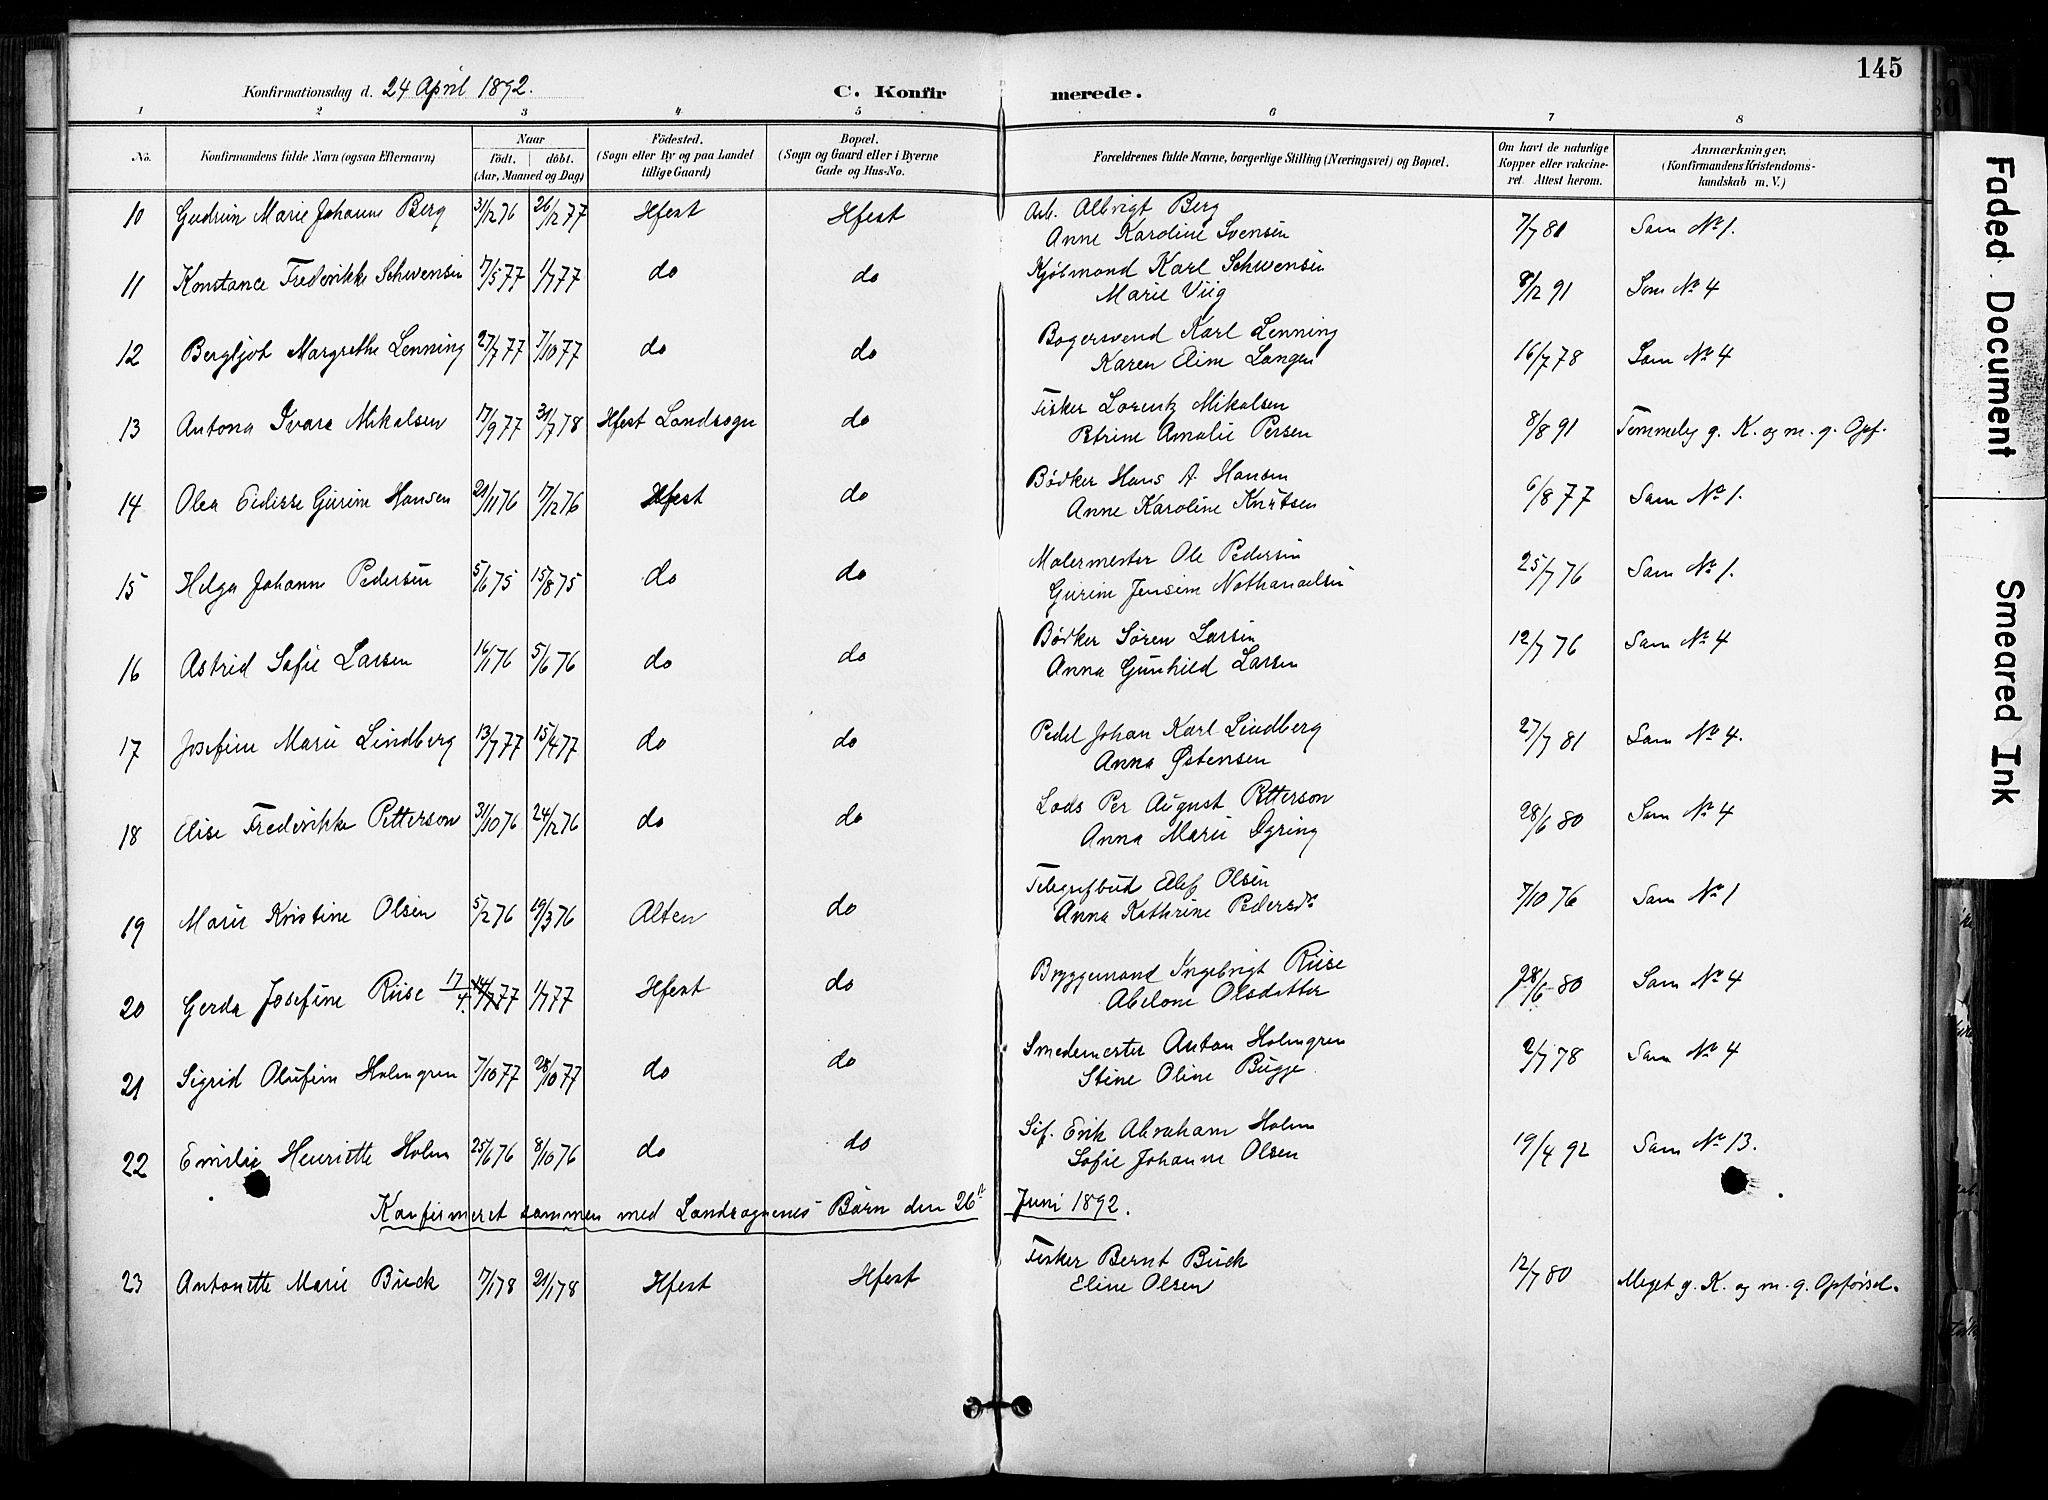 145
Konfirmationsdag d. 24 April 1892.
C. Konfirmerede.
1 2 3 4 5 6 7 8
No.
Konfirmandens fulde Navn (ogsaa Efternavn)
Naar
født. døbt.
(Aar, Maaned og Dag)
Fødested.
(Sogn eller By og paa Landet
tillige Gaard)
Bopæl.
(Sogn og Gaard eller i Byerne
Gade og Hus-No.
Forældrenes fulde Navne, borgerlige Stilling (Næringsvei) og Bopæl.
Om havt de naturlige
Kopper eller vakcine-
ret. Attest herom.
Anmærkninger,
(Konfirmandens Kristendoms-
kundskab m. V.)
10 Gudrun Marie Johanne Berg 31/12 76 26/12 77 Hfest Hfest Arb. Albrigt Berg 7/7 81 Som No 1.
Anne Karoline Svensen
11 Konstance Frederikke Schwensen 7/5 77 1/7 77 do do Kjøbmand Karl Schwensen 8/12 91 Som No 4
Marie Viig
12 Bergljot Margrethe Lenning 27/7 77 7/10 77 do do Bogersvend Karl Lenning 16/7 78 Som No 4
Karen Eline Langen
13 Antona Ivara Mikalsen 17/9 77 31/7 78 Hfest Landsogn do Fisker Lorentz Mikalsen 8/8 91 Temmelig g. K. og m. g. Opf.
Petrine Amalie Persen
14 Olea Gurine Hansen 21/11 76 17/12 76 Hfest do Bødker Hans A. Hansen 6/8 77 Som No 1.
Anne Karoline Knutsen
15 Helga Johanne Pedersen 5/6 75 15/8 75 do do Malermester Ole Pedersen 25/7 76 Som No 1.
Gurine Jensine Nathanaelsen
16 Astrid Sofie Larsen 16/1 76 5/6 76 do do Bødker Søren Larsen 12/7 76 Som No 4
Anna Gunhild Larsen
17 Josefine Marie Lindberg 13/1 77 15/4 77 do do Pedel Johan Karl Lindberg 27/7 81 Som No 4.
Anna Østensen
18 Elise Frederikke Petterson 31/10 76 24/12 76 do do Lods Per August Petterson 28/6 80 Som No 4
Anna Marie Gyring
19 Marie Kristine Olsen 5/2 76 19/3 76 Alten do Telegrafbud Elef Olsen 7/10 76 Som No 1
Anna Kathrine Pedersdr
20 Gerda Josefine Riise 17/4 77 1/7 77 Hfest do Bryggemand Ingebrigt Riise 28/6 80 Som No 4
Abelone Olsdatter
21 Sigrid Olufine Holmgren 7/10 77 28/10 77 do do Smedemester Anton Holmgren 2/7 78 Som No 4
Stine Oline Bugge
22 Emilie Henriette Holm 25/6 76 8/10 76 do do Erik Abraham Holm 19/4 92 Som No 13.
Sofie Johanne Olsen
Konfirmeret sammen med Landsognenes Børn den 26de Juni 1892.
23 Antonette Marie Buck 7/1 78 21/1 78 Hfest Hfest Fisker Bernt Buck 12/7 80 Meget g. K. og m. g. Opførsel.
Eline Olsen
Faded Document
Smeared Ink